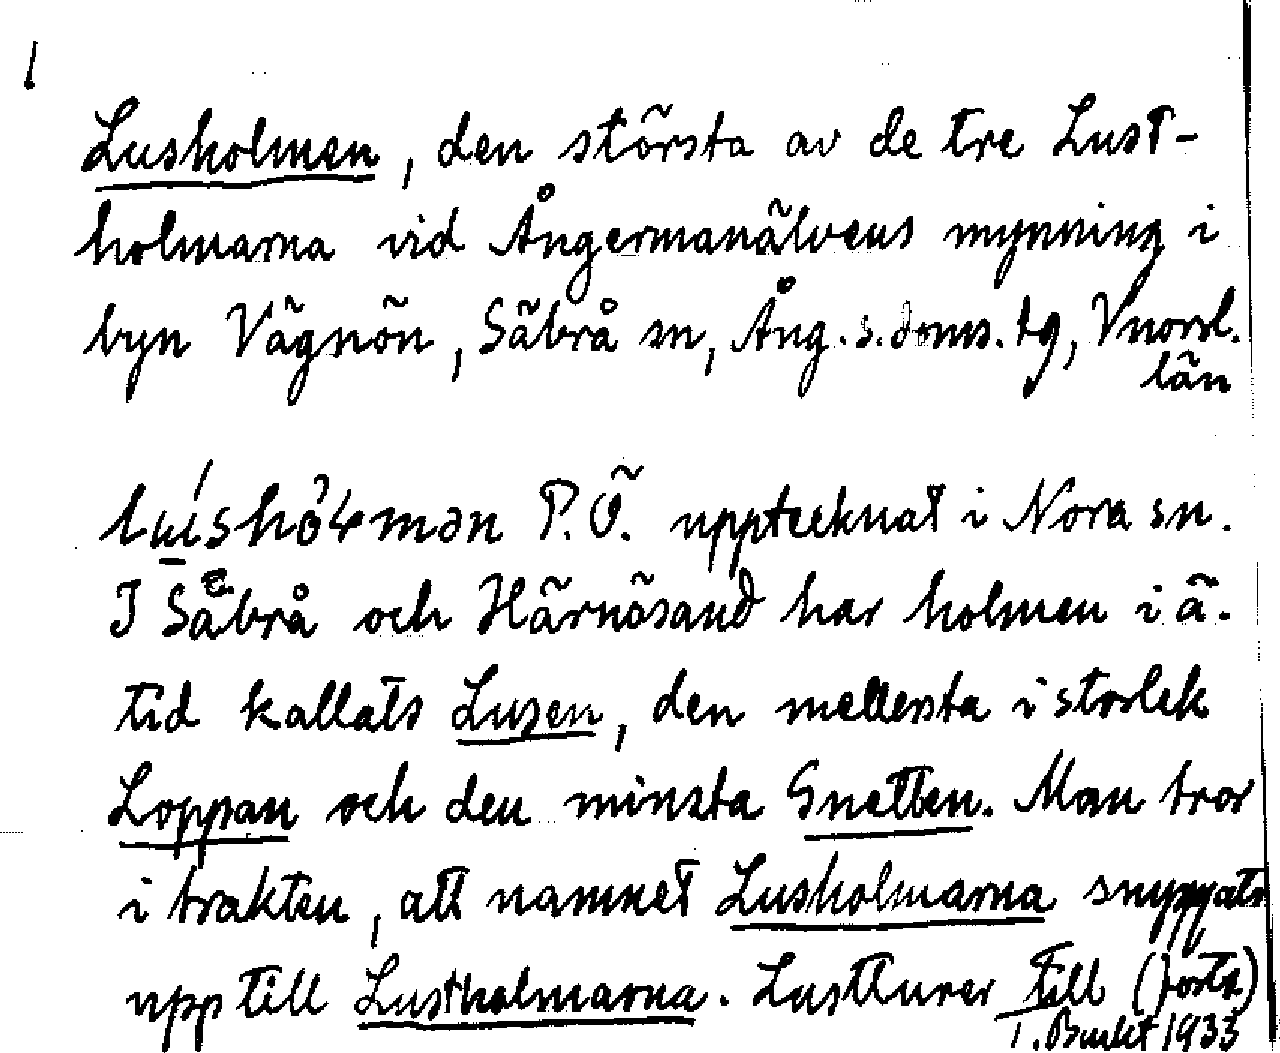 1
Lusholmen, den största av de tre Lust-
holmarna vid Ångermanälvens mynning i
byn Vägnön, Säbrå sn, Ång. s. doms. tg, Vnorrl.
län
P. Ö. upptecknat i Nora sn.
I Säbrå och Härnösand har holmen i ä.
tid kallats Lusen, den mellersta i storlek
Loppan och den minsta Gnetten. Man tror
i trakten, att namnet Lusholmarna snyggats
upp till Lustholmarna. Lustturer till (forts.)
1933